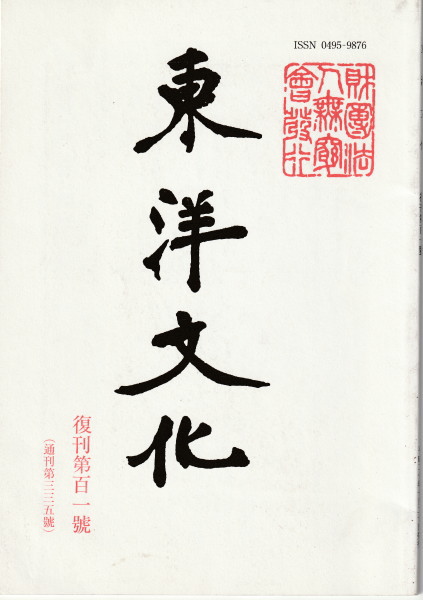 ISSN 0495-9876
財團法
人無窮
會發行
東洋文化
復刊第百一號
（通刊第三三五號）